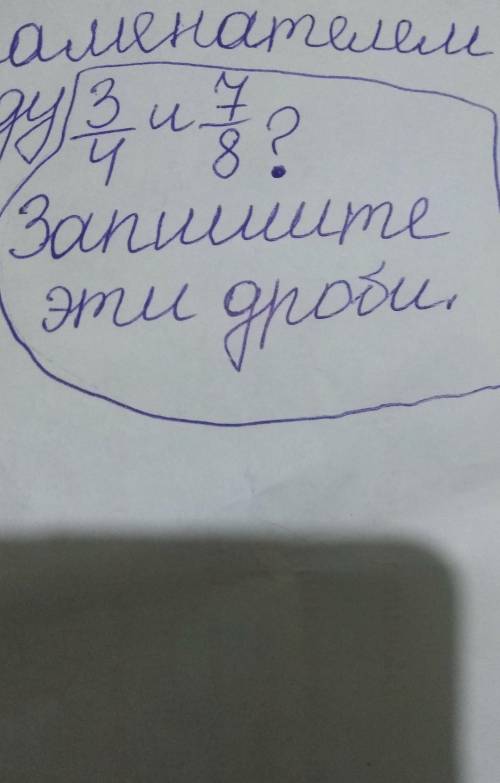 аменателем
ду 3/4 и 7/8?
Запишите
эти дроби.